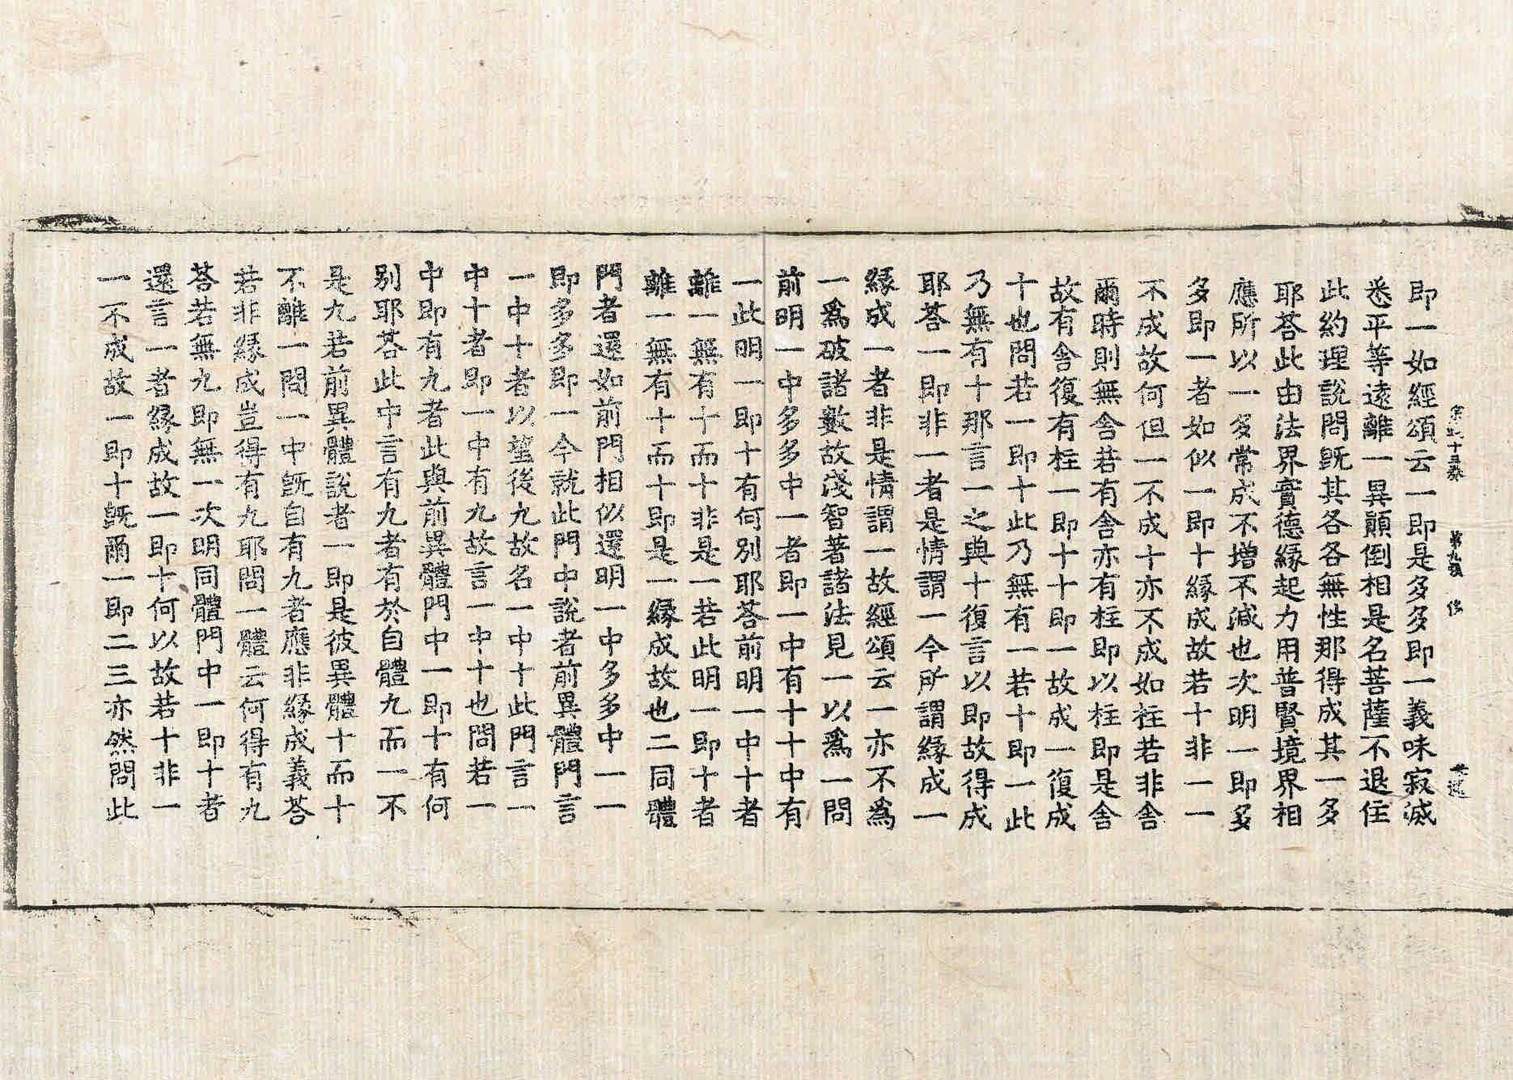 第九張
即一如經頌云一即是多多即一義味寂滅
悉平等遠離一異顛倒相是名菩薩不退住
此約理說問旣其各各無性那得成其一多
耶荅此由法界實德緣起力用普賢境界相
應所以一多常成不增不減也次明一即多
多即一者如似一即十緣成故若十非一一
不成故何但一不成十亦不成如柱若非舍
爾時則無舍若有舍亦有柱即以柱即是舍
故有舍復有柱一即十十即一故成一復成
十也問若一即十此乃無有一若十即一此
乃無有十那言一之與十復言以即故得成
耶荅一即非一者是情謂一今所謂緣成一
緣成一者非是情謂一故經頌云一亦不爲
一爲破諸數故淺智著諸法見一以爲一問
前明一中多多中一者即一中有十十中有
一此明一即十有何別耶荅前明一中十者
離一無有十而十非是一若此明一即十者
離一無有十而十即是一緣成故也二同體
門者還如前門相似還明一中多多中一一
即多多即一今就此門中說者前異體門言
一中十者以望後九故名一中十此門言一
中十者即一中有九故言一中十也問若一
中即有九者此與前異體門中一即十有何
別耶荅此中言有九者有於自體九而一不
是九若前異體說者一即是彼異體十而十
不離一問一中旣自有九者應非緣成義荅
若非緣成豈得有九耶問一體云何得有九
荅若無九即無一次明同體門中一即十者
還言一者緣成故一即十何以故若十非一
一不成故一即十旣爾一即二三亦然問此